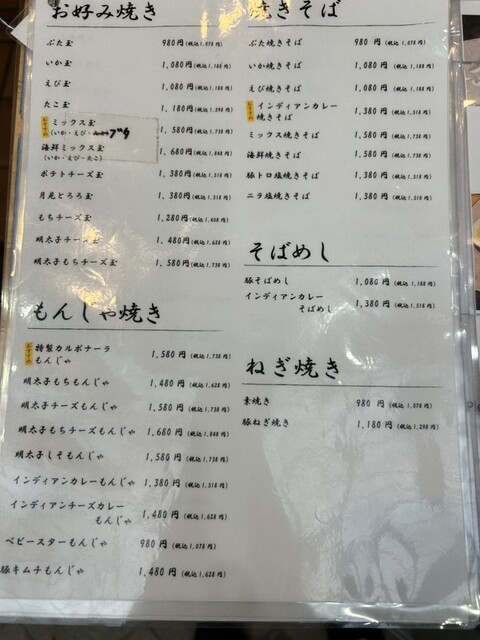 お好み焼き
ぶた玉 980円(税込1,078円)
いか玉 1,080円(税込1,188円)
えび玉 1,080円(税込1,188円)
たこ玉 1,180円(税込1,298円)
おすすめ ミックス玉 1,580円(税込1,738円)
(いか・えび・ブタ
海鮮ミックス玉 1,680円(税込1,848円)
(いか・えび・たこ)
ポテトチーズ玉 1,380円(税込1,518円)
月見とろろ玉 1,380円(税込1,518円)
もちチーズ玉 1,280円(税込1,408円)
明太子チーズ玉 1,480円(税込1,628円)
明太子もちチーズ玉 1,580円(税込1,738円)
もんじゃ焼き
おすすめ 特製カルボナーラ
もんじゃ 1,580円(税込1,738円)
明太子もちもんじゃ 1,480円(税込1,628円)
明太子チーズもんじゃ 1,580円(税込1,738円)
明太子もちチーズもんじゃ 1,680円(税込1,848円)
明太子しそもんじゃ 1,580円(税込1,738円)
インディアンカレーもんじゃ 1,380円(税込1,518円)
インディアンチーズカレー
もんじゃ 1,480円(税込1,628円)
ベビースターもんじゃ 980円(税込1,078円)
豚キムチもんじゃ 1,480円(税込1,628円)
焼きそば
ぶた焼きそば 980円(税込1,078円)
いか焼きそば 1,080円(税込1,188円)
えび焼きそば 1,080円(税込1,188円)
おすすめ インディアンカレー
焼きそば 1,380円(税込1,518円)
ミックス焼きそば 1,580円(税込1,738円)
海鮮焼きそば 1,580円(税込1,738円)
豚トロ塩焼きそば 1,380円(税込1,518円)
ニラ塩焼きそば 1,380円(税込1,518円)
そばめし
豚そばめし 1,080円(税込1,188円)
インディアンカレー
そばめし 1,380円(税込1,518円)
ねぎ焼き
素焼き 980円(税込1,078円)
豚ねぎ焼き 1,180円(税込1,298円)